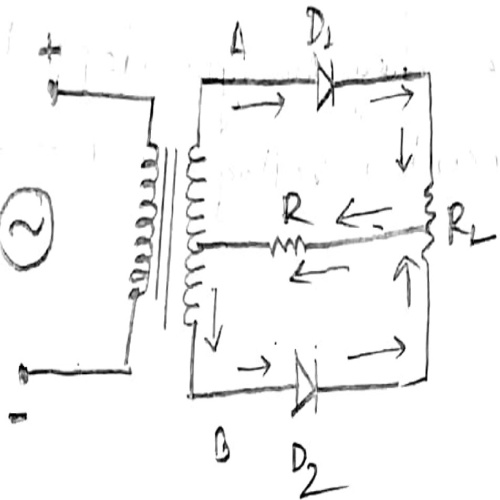 +
A
D1
~
R
RL
-
B
D2